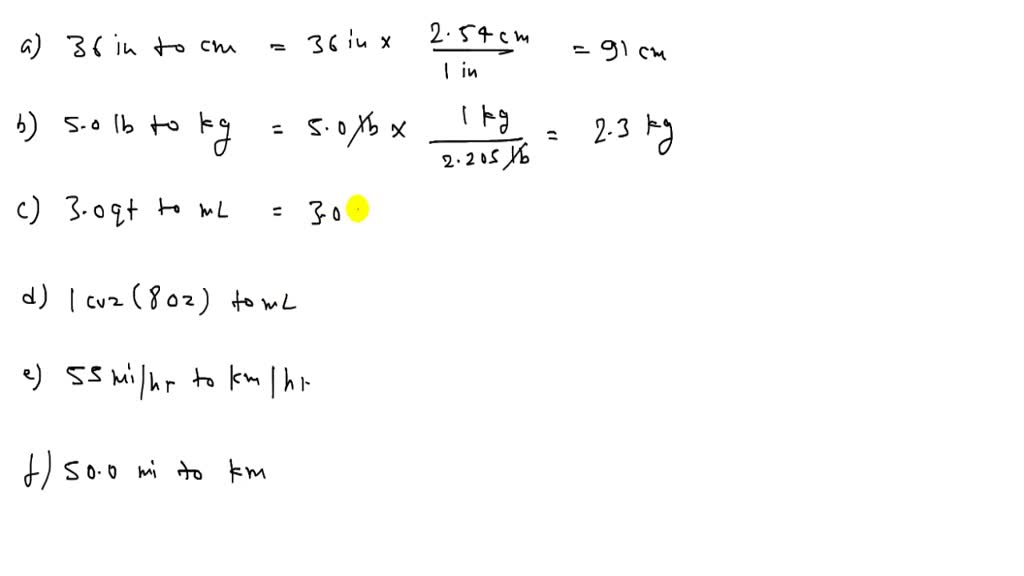 a) 36 in to cm = 36 in x 2.54 cm / 1 in = 91 cm
b) 5.0 lb to kg = 5.0 lb x 1 kg / 2.205 lb = 2.3 kg
c) 3.0 qt to mL = 3.0
d) 1 cuz (8 oz) to mL
e) 55 mi/hr to km/hr
f) 50.0 mi to km